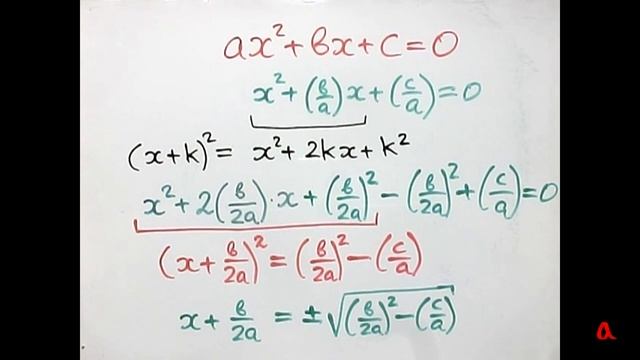 ax² + bx + c = 0
x² + (b/a)x + (c/a) = 0
(x+k)² = x² + 2kx + k²
x² + 2(b/2a)·x + (b/2a)² − (b/2a)² + (c/a) = 0
(x + b/2a)² = (b/2a)² − (c/a)
x + b/2a = ±√((b/2a)² − (c/a))
a